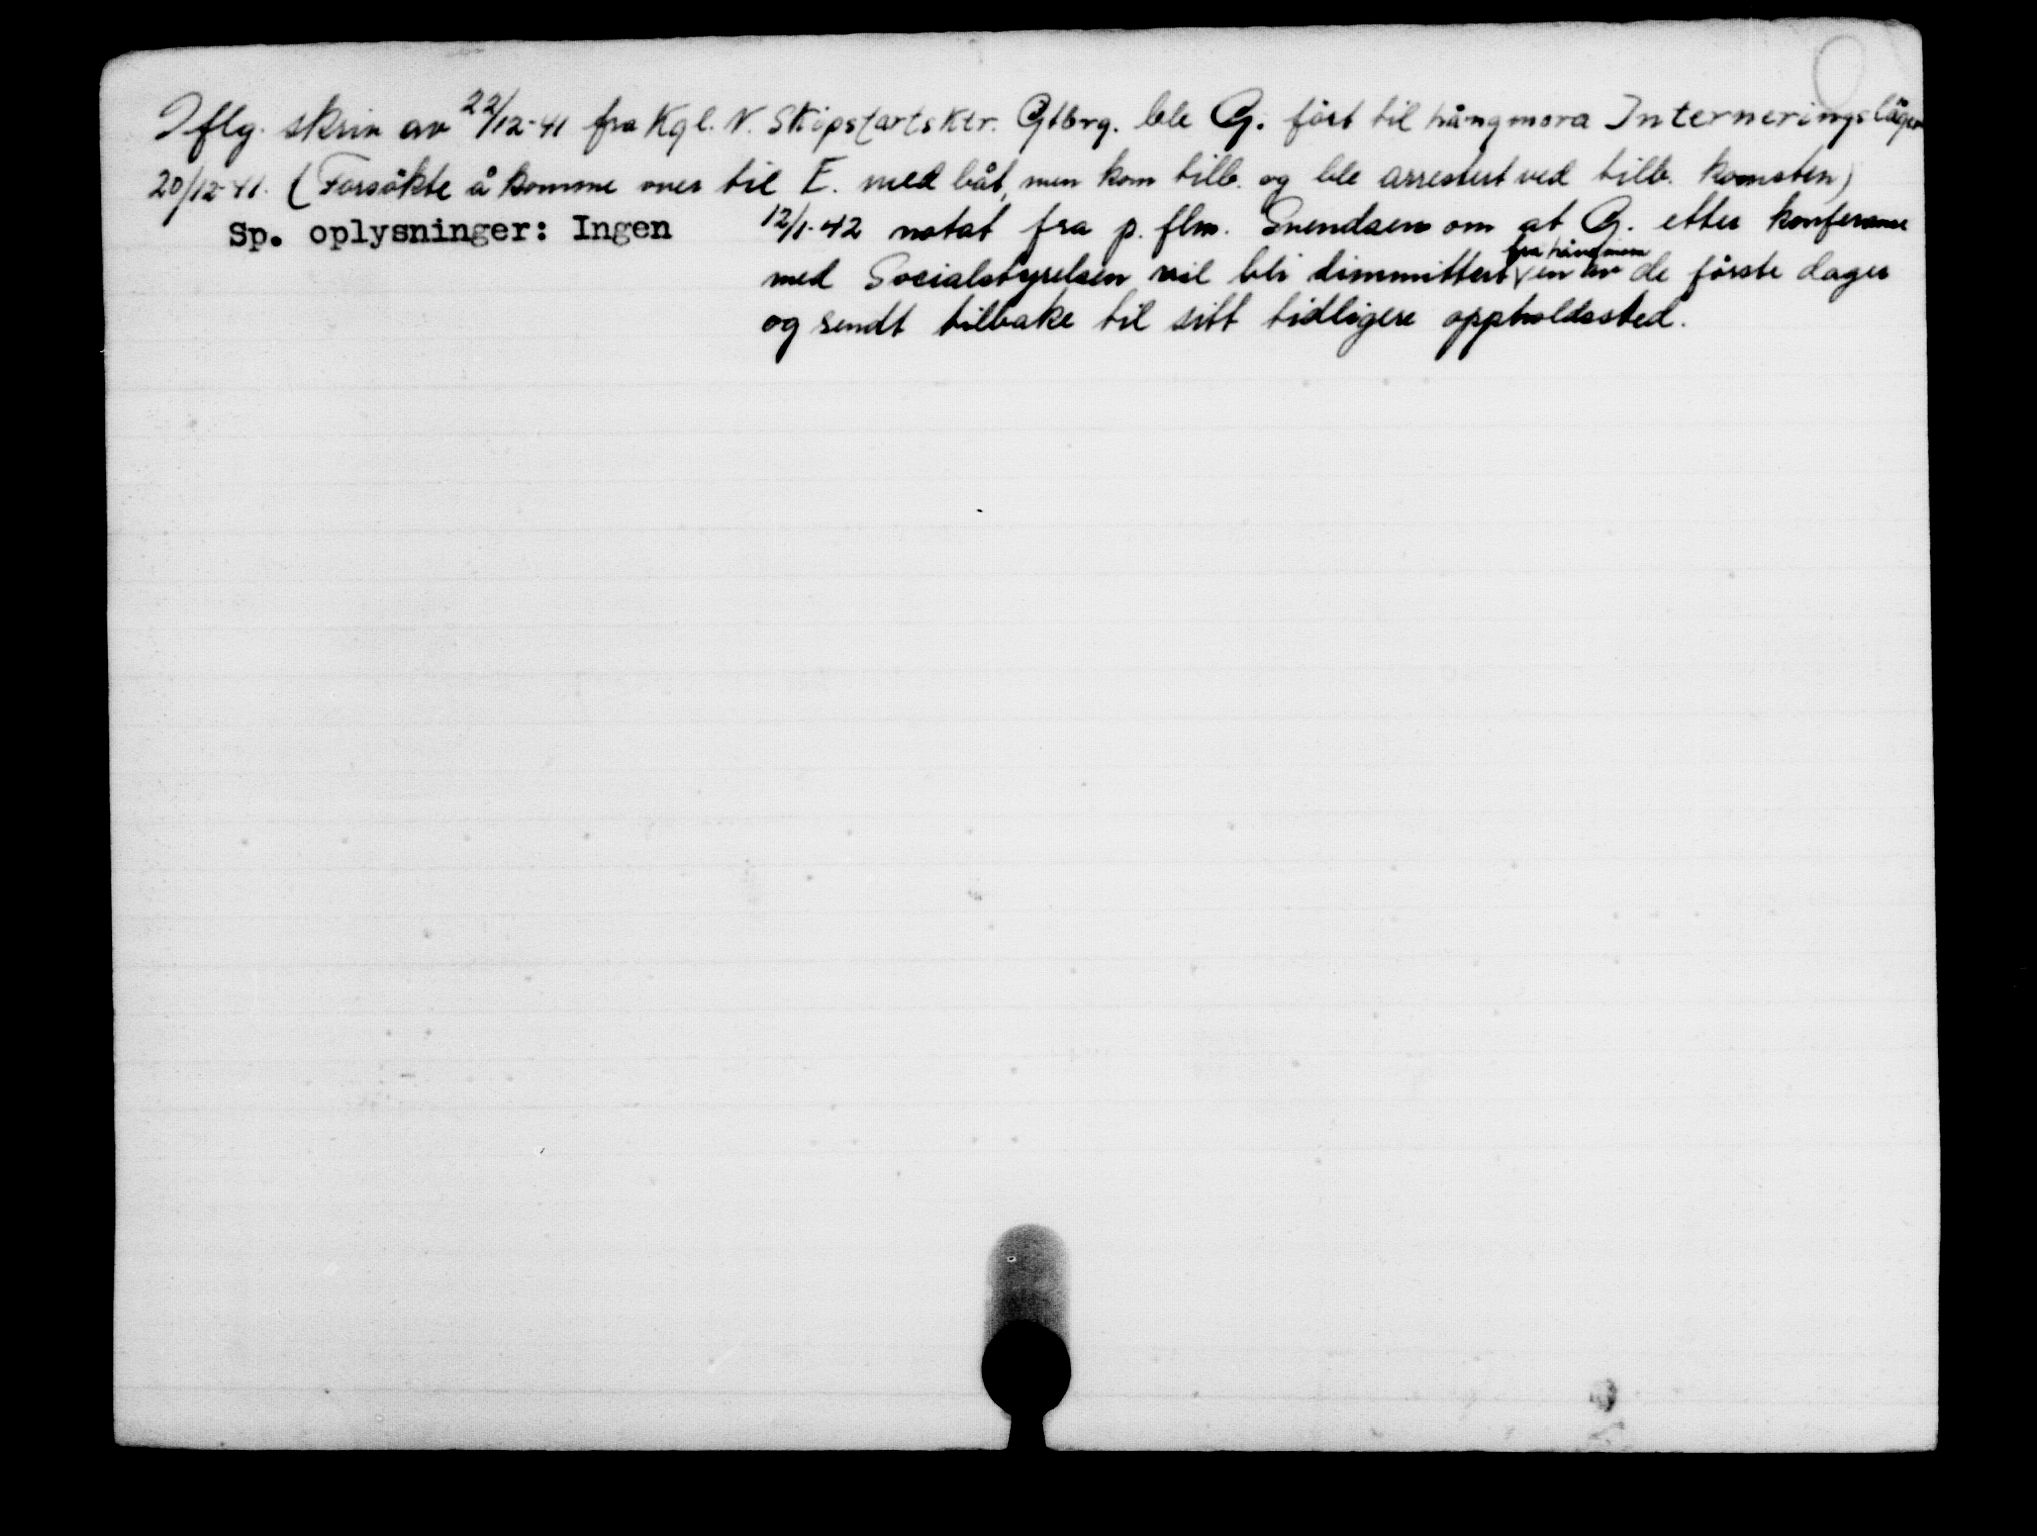 Iflg. skriv av 22/12-41 fra Kgl. N. Skipsfartsktr. Gtbrg. ble G. fört til Långmora Interneringsläger
20/12-41. (Forsökte å komme over til E. med båt, men kom tilb. og ble arrestert ved tilb. komsten)
Sp. oplysninger: Ingen 12/1-42 notat fra p. flm. Svendsen om at G. etter konferanse
med Socialstyrelsen vil bli dimmittert fra Långmora en av de förste dager
og sendt tilbake til sitt tidligere oppholdssted.